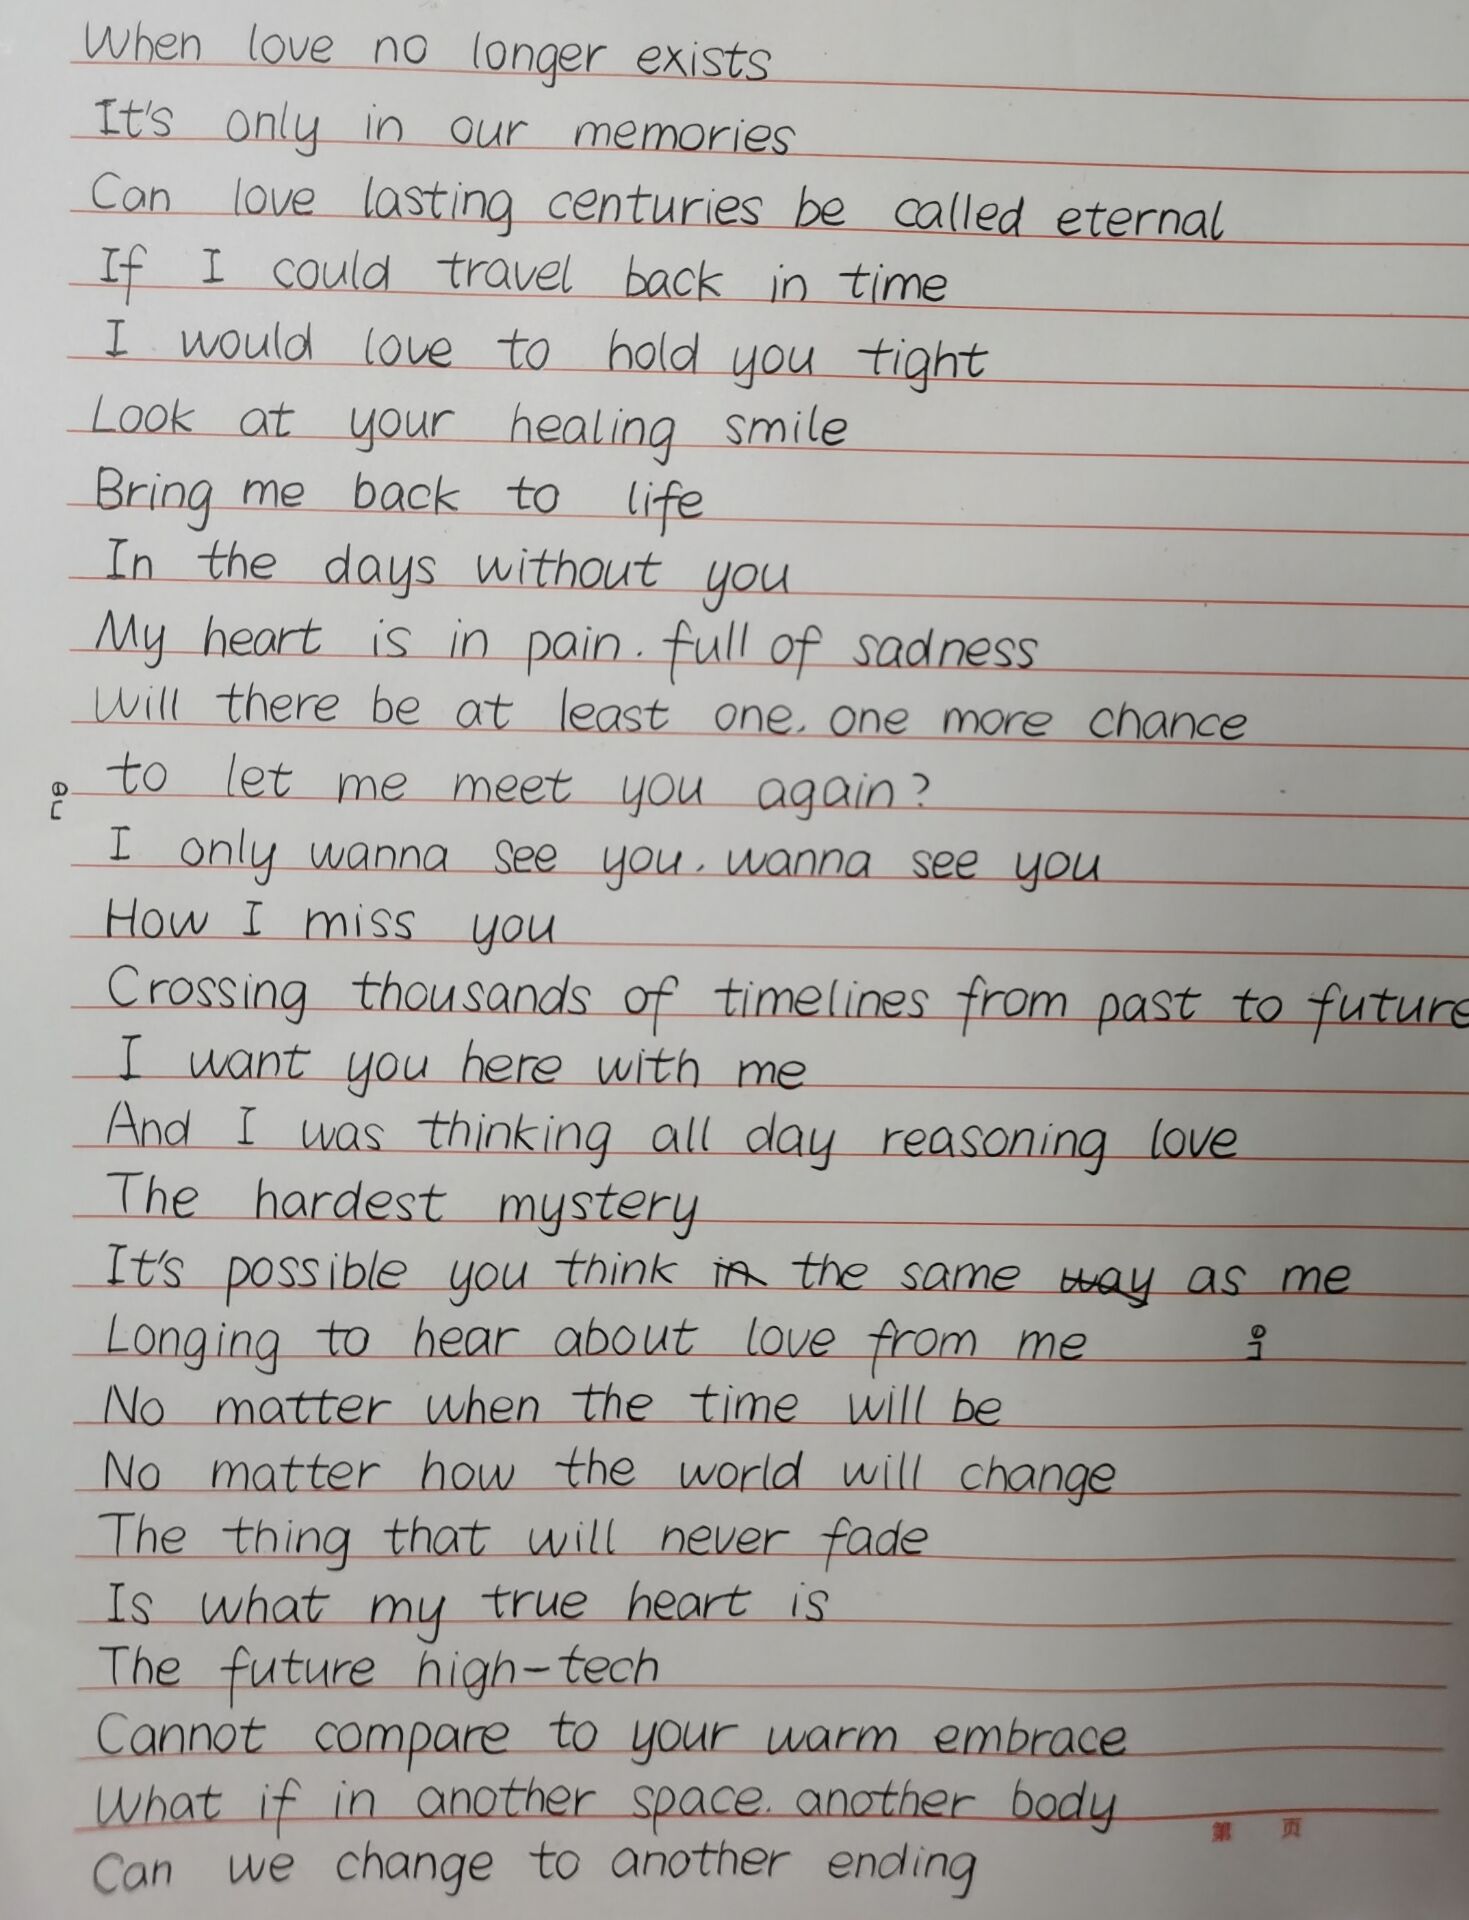 When love no longer exists
It's only in our memories
Can love lasting centuries be called eternal
If I could travel back in time
I would love to hold you tight
Look at your healing smile
Bring me back to life
In the days without you
My heart is in pain. full of sadness
Will there be at least one. one more chance
to let me meet you again?
I only wanna see you. wanna see you
How I miss you
Crossing thousands of timelines from past to future
I want you here with me
And I was thinking all day reasoning love
The hardest mystery
It's possible you think in the same way as me
Longing to hear about love from me
No matter when the time will be
No matter how the world will change
The thing that will never fade
Is what my true heart is
The future high-tech
Cannot compare to your warm embrace
What if in another space. another body
第 页
Can we change to another ending